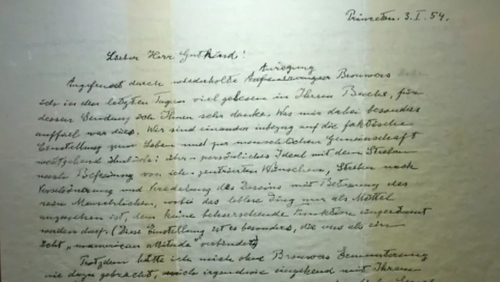 Princeton. 3. I. 54.
Lieber Herr Gutkind!
Angefeuert durch wiederholte Anregung Brouwers
ich in den letzten Tagen viel gelesen in Ihrem Buche, für
dessen Sendung ich Ihnen sehr danke. Was mir dabei besonders
auffiel war dies. Wir sind einander inbezug auf die faktische
Einstellung zum Leben und zur menschlichen Gemeinschaft
ähnlich: persönliches Ideal mit dem Streben
nach Befreiung von ich-zentrierten Wünschen, Streben nach
Verschönerung und Veredelung des Daseins mit Betonung des
rein Menschlichen, wobei das leblose Ding nur als Mittel
anzusehen ist, dem keine beherrschende Funktion eingeräumt
werden darf. (Diese Einstellung ist es besonders, die uns als ein
echt "unamerican attitude" verbindet)
Trotzdem hätte ich mich ohne Brouwers Ermunterung
nie dazu gebracht, mich irgendwie eingehend mit Ihrem